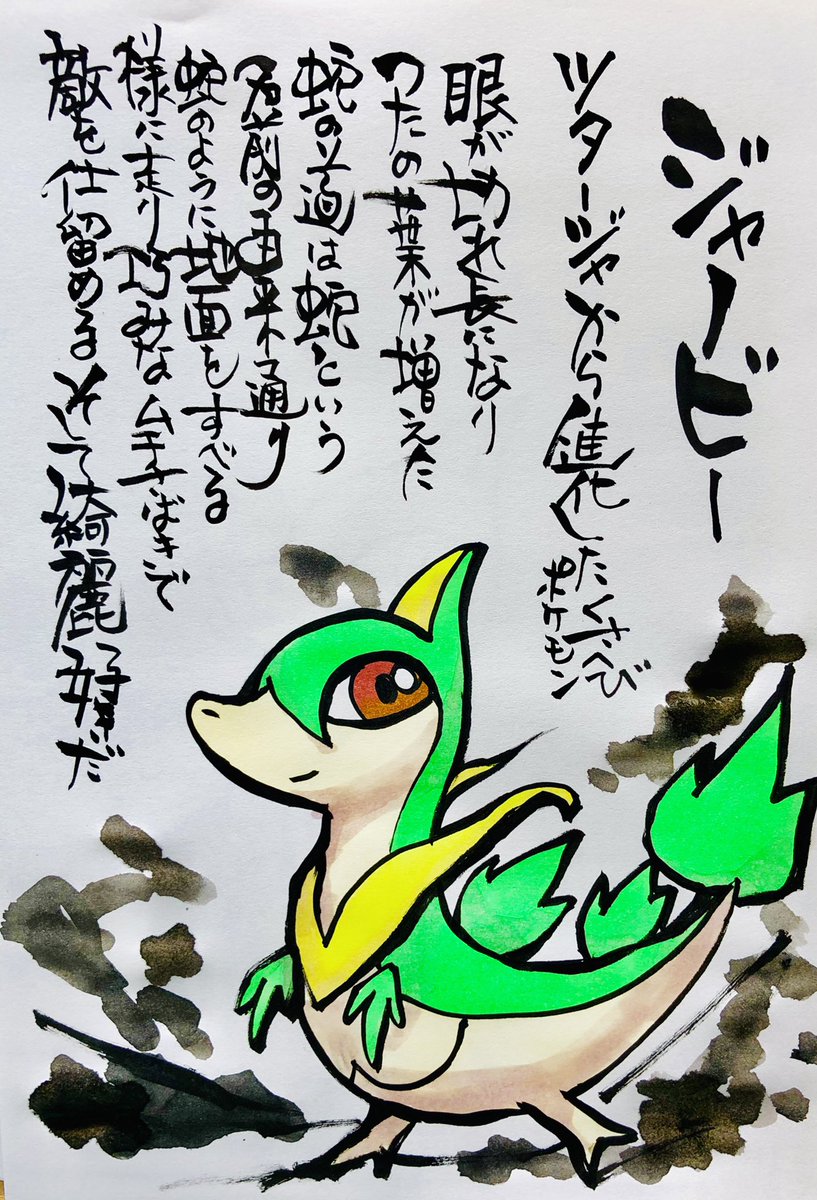 ジャノビー
ツタージャから進化したくさへび
ポケモン
眼が切れ長になり
つたの葉が増えた
蛇の道は蛇という
名前の由来の通り
蛇のように地面をすべる
様に走り巧みなムチさばきで
敵を仕留めるそして綺麗好だ